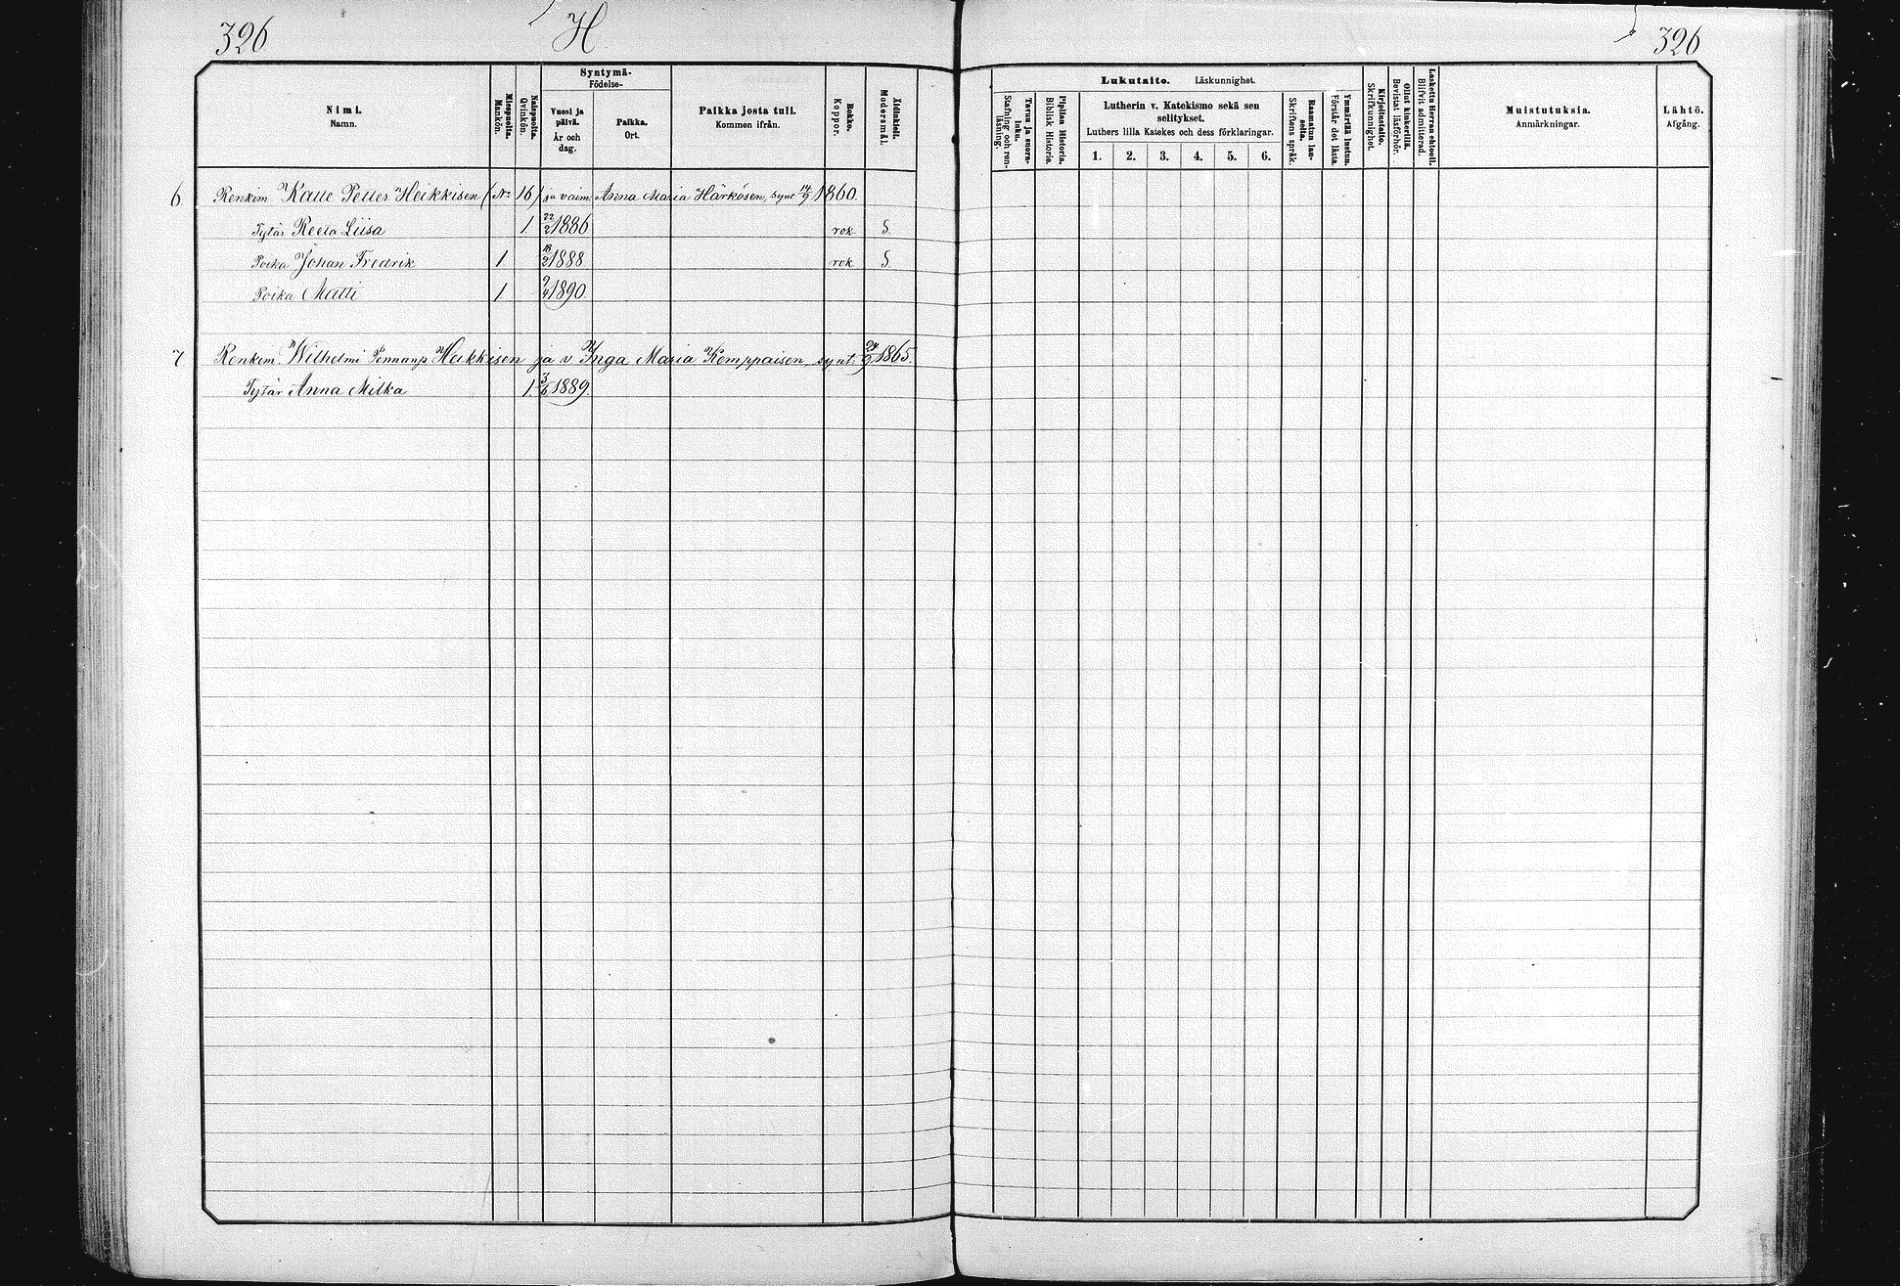 326
H
326
Nimi.
Namn.
Miespuolta.
Mankön.
Naispuolta.
Qvinkön.
Syntymä-
Födelse-
Vuosi ja
päivä.
År och
dag.
Paikka.
Ort.
Paikka josta tuli.
Kommen ifrån.
Rokko.
Koppor.
Äidinkieli.
Modersmål.
Lukutaito. Läskunnighet.
Tavuu ja suora-
luku.
Stafning och ren-
läsning.
Piplian Historia.
Biblisk Historia.
Lutherin v. Katekismo sekä sen
selitykset.
Luthers lilla Katekes och dess förklaringar.
1. 2. 3. 4. 5. 6.
Raamatun lau-
seita.
Skriftens språk.
Ymmärtää luetun.
Förstår det lästa.
Kirjoitustaito.
Skrifkunnighet.
Ollut kinkerillä.
Bevistat läsförhör.
Laskettu Herran ehtool.
Blifvit admitterad.
Muistutuksia.
Anmärkningar.
Lähtö.
Afgång.
6 Renkim Kalle Petter Heikkisen (No 16) ja vaim Anna Maria Härkösen, synt 14/9 1860.
Tytär Reeta Liisa 1 22/2 1886 rok. S.
Poika Johan Fredrik 1 18/2 1888 rok. S.
Poika Matti 1 9/4 1890.
7 Renkim Wilhelmi Heikkisen ja v. Inga Maria Kemppaisen, synt. 24/9 1865.
Tytär Anna Milka 1. 3/6 1889.